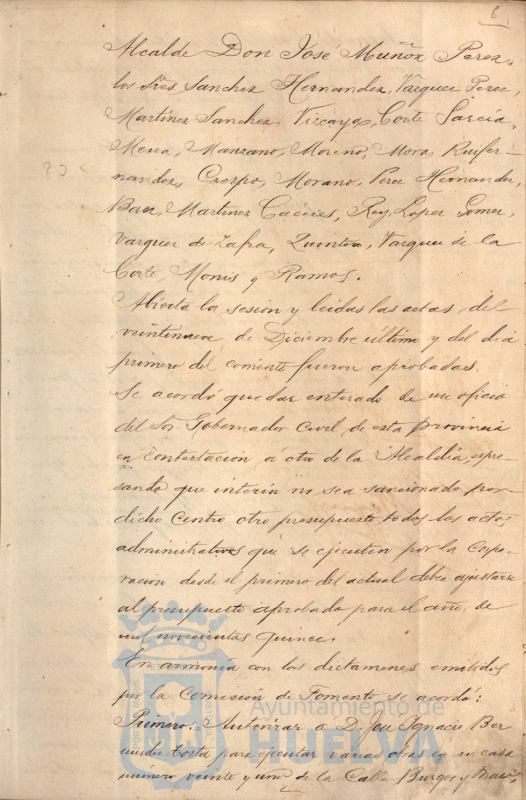 6
Alcalde Don José Muñoz Perez,
los Sres Sanchez Hernandez, Vazquez Perez,
Martinez Sanchez, Vizcaya, Corte Garcia,
Mesa, Manzano, Moreno, Mora, Ruifer-
nandez, Crespo, Morano, Perez Hernandez,
Baez, Martinez Caceres, Rey, Lopez Gomez,
Vazquez de Zafra, Quintero, Vazquez de la
Corte Monis y Ramos.
Abierta la sesion y leidas las actas del
veintinueve de Diciembre último y del dia
primero del corriente fueron aprobadas.
Se acordó quedar enterado de un oficio
del Sor. Gobernador Civil de esta provincia
en contestacion á otro de la Alcaldía, expre-
sando que interin no sea sancionado por
dicho Centro otro presupuesto todos los actos
administrativos que se ejecuten por la Corpo-
ración desde el primero del actual deben ajustarse
al presupuesto aprobado para el año de
mil novecientos quince.
En armonía con los dictamenes emitidos
por la Comisión de Fomento se acordó:
Primero. Autorizar a D. Jose Ignacio Ber
mudez Costa para ejecutar varias obras en su casa
número veinte y uno de la Calle Burgos y
Ayuntamiento de
HUELVA